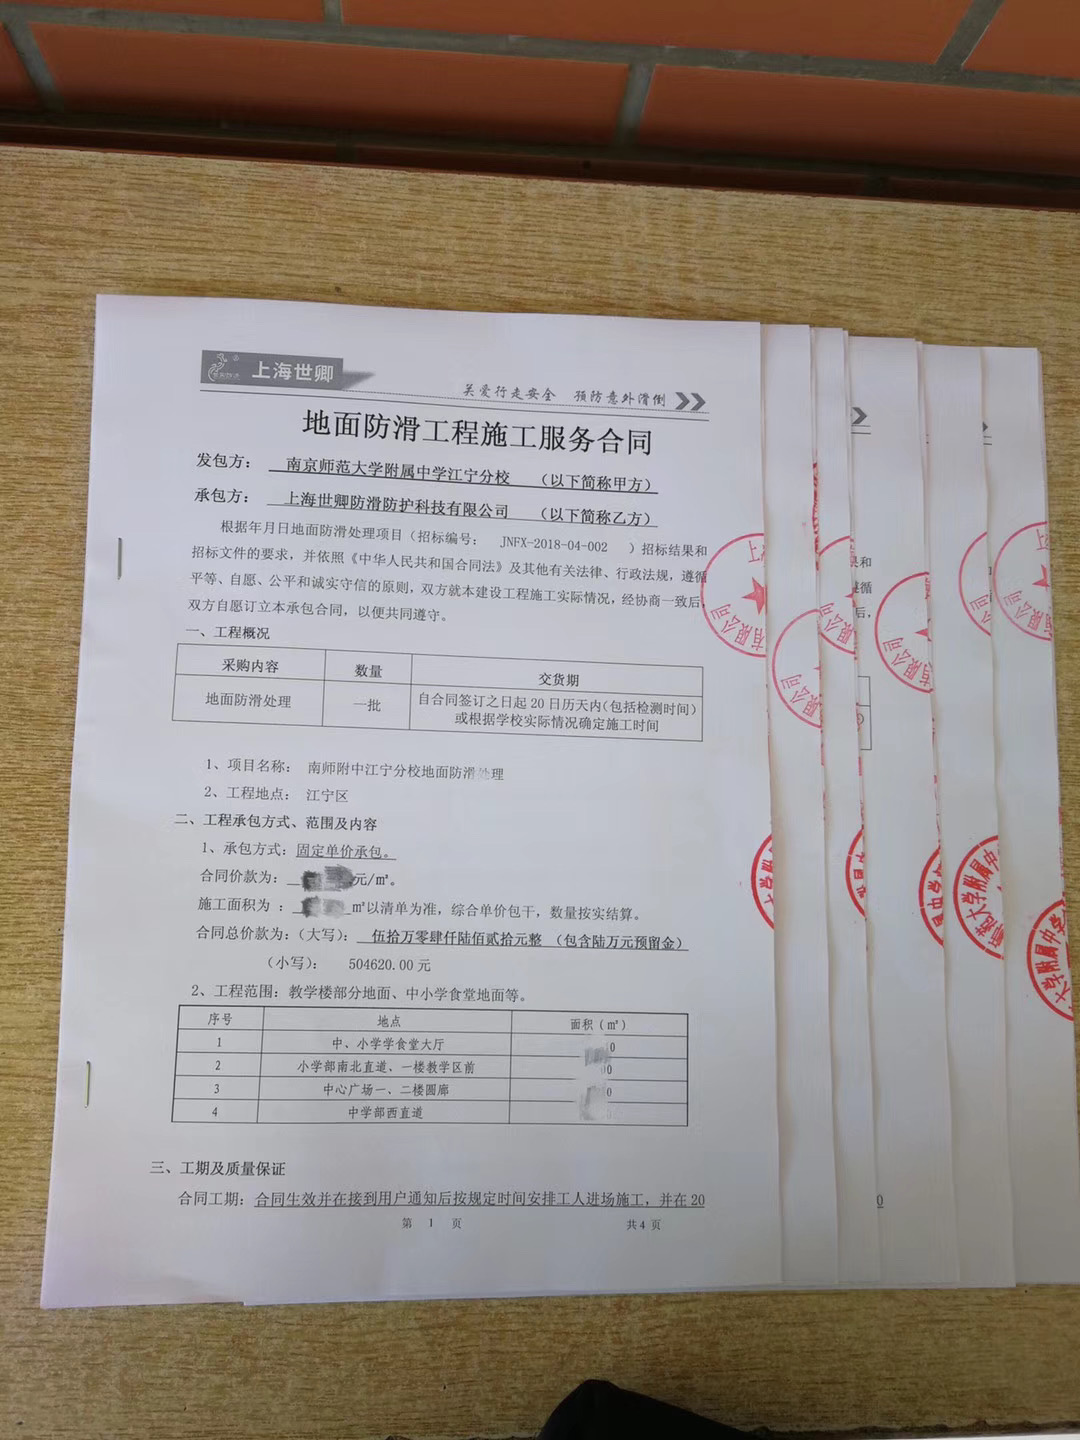 上海世卿
关爱行走安全 预防意外滑倒
地面防滑工程施工服务合同
发包方： 南京师范大学附属中学江宁分校 （以下简称甲方）
承包方： 上海世卿防滑防护科技有限公司 （以下简称乙方）
根据年月日地面防滑处理项目（招标编号： JNFX-2018-04-002 ）招标结果和
招标文件的要求，并依照《中华人民共和国合同法》及其他有关法律、行政法规，遵循
平等、自愿、公平和诚实守信的原则，双方就本建设工程施工实际情况，经协商一致后，
双方自愿订立本承包合同，以便共同遵守。
一、工程概况
采购内容 数量 交货期
地面防滑处理 一批 自合同签订之日起 20 日历天内（包括检测时间）
或根据学校实际情况确定施工时间
1、项目名称： 南师附中江宁分校地面防滑处理
2、工程地点： 江宁区
二、工程承包方式、范围及内容
1、承包方式：固定单价承包。
合同价款为： 元/㎡。
施工面积为 ： ㎡以清单为准，综合单价包干，数量按实结算。
合同总价款为：（大写）： 伍拾万零肆仟陆佰贰拾元整 （包含陆万元预留金）
（小写）： 504620.00 元
2、工程范围：教学楼部分地面、中小学食堂地面等。
序号 地点 面积（㎡）
1 中、小学学食堂大厅 0
2 小学部南北直道、一楼教学区前 00
3 中心广场一、二楼圆廊 0
4 中学部西直道
三、工期及质量保证
合同工期：合同生效并在接到用户通知后按规定时间安排工人进场施工，并在 20
第 1 页 共 4 页